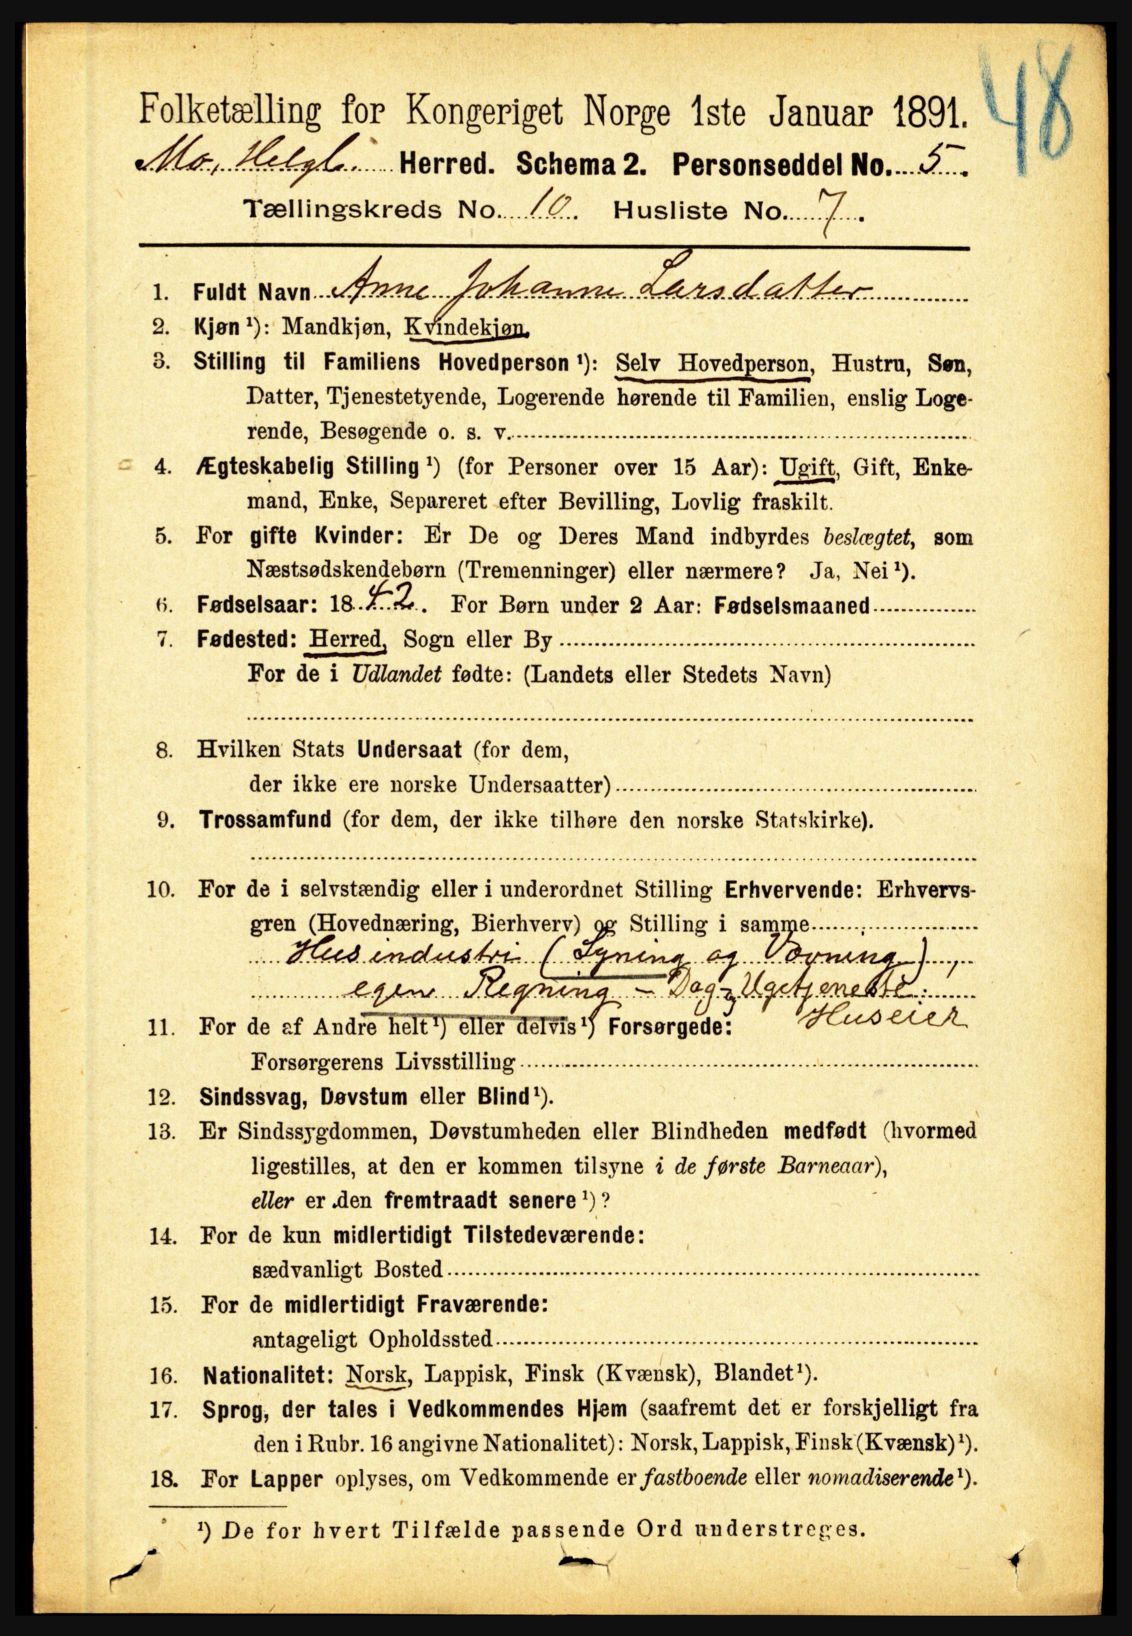 48
Folketælling for Kongeriget Norge 1ste Januar 1891.
Mo, Helgl. Herred. Schema 2. Personseddel No. 5.
Tællingskreds No. 10. Husliste No. 7.
1. Fuldt Navn Anne Johanne Larsdatter
2. Kjøn ¹): Mandkjøn, Kvindekjøn.
3. Stilling til Familiens Hovedperson ¹): Selv Hovedperson, Hustru, Søn,
Datter, Tjenestetyende, Logerende hørende til Familien, enslig Loge-
rende, Besøgende o. s. v.
4. Ægteskabelig Stilling ¹) (for Personer over 15 Aar): Ugift, Gift, Enke-
mand, Enke, Separeret efter Bevilling, Lovlig fraskilt.
5. For gifte Kvinder: Er De og Deres Mand indbyrdes beslægtet, som
Næstsødskendebørn (Tremenninger) eller nærmere? Ja, Nei ¹).
6. Fødselsaar: 1842. For Børn under 2 Aar: Fødselsmaaned
7. Fødested: Herred, Sogn eller By
For de i Udlandet fødte: (Landets eller Stedets Navn)
8. Hvilken Stats Undersaat (for dem,
der ikke ere norske Undersaatter)
9. Trossamfund (for dem, der ikke tilhøre den norske Statskirke).
10. For de i selvstændig eller i underordnet Stilling Erhvervende: Erhvervs-
gren (Hovednæring, Bierhverv) og Stilling i samme
Husindustri (Syning og Vævning),
egen Regning – Dag- og Ugetjeneste.
Huseier
11. For de af Andre helt ¹) eller delvis ¹) Forsørgede:
Forsørgerens Livsstilling
12. Sindssvag, Døvstum eller Blind ¹).
13. Er Sindssygdommen, Døvstumheden eller Blindheden medfødt (hvormed
ligestilles, at den er kommen tilsyne i de første Barneaar),
eller er den fremtraadt senere ¹)?
14. For de kun midlertidigt Tilstedeværende:
sædvanligt Bosted
15. For de midlertidigt Fraværende:
antageligt Opholdssted
16. Nationalitet: Norsk, Lappisk, Finsk (Kvænsk), Blandet ¹).
17. Sprog, der tales i Vedkommendes Hjem (saafremt det er forskjelligt fra
den i Rubr. 16 angivne Nationalitet): Norsk, Lappisk, Finsk (Kvænsk) ¹).
18. For Lapper oplyses, om Vedkommende er fastboende eller nomadiserende ¹).
¹) De for hvert Tilfælde passende Ord understreges.